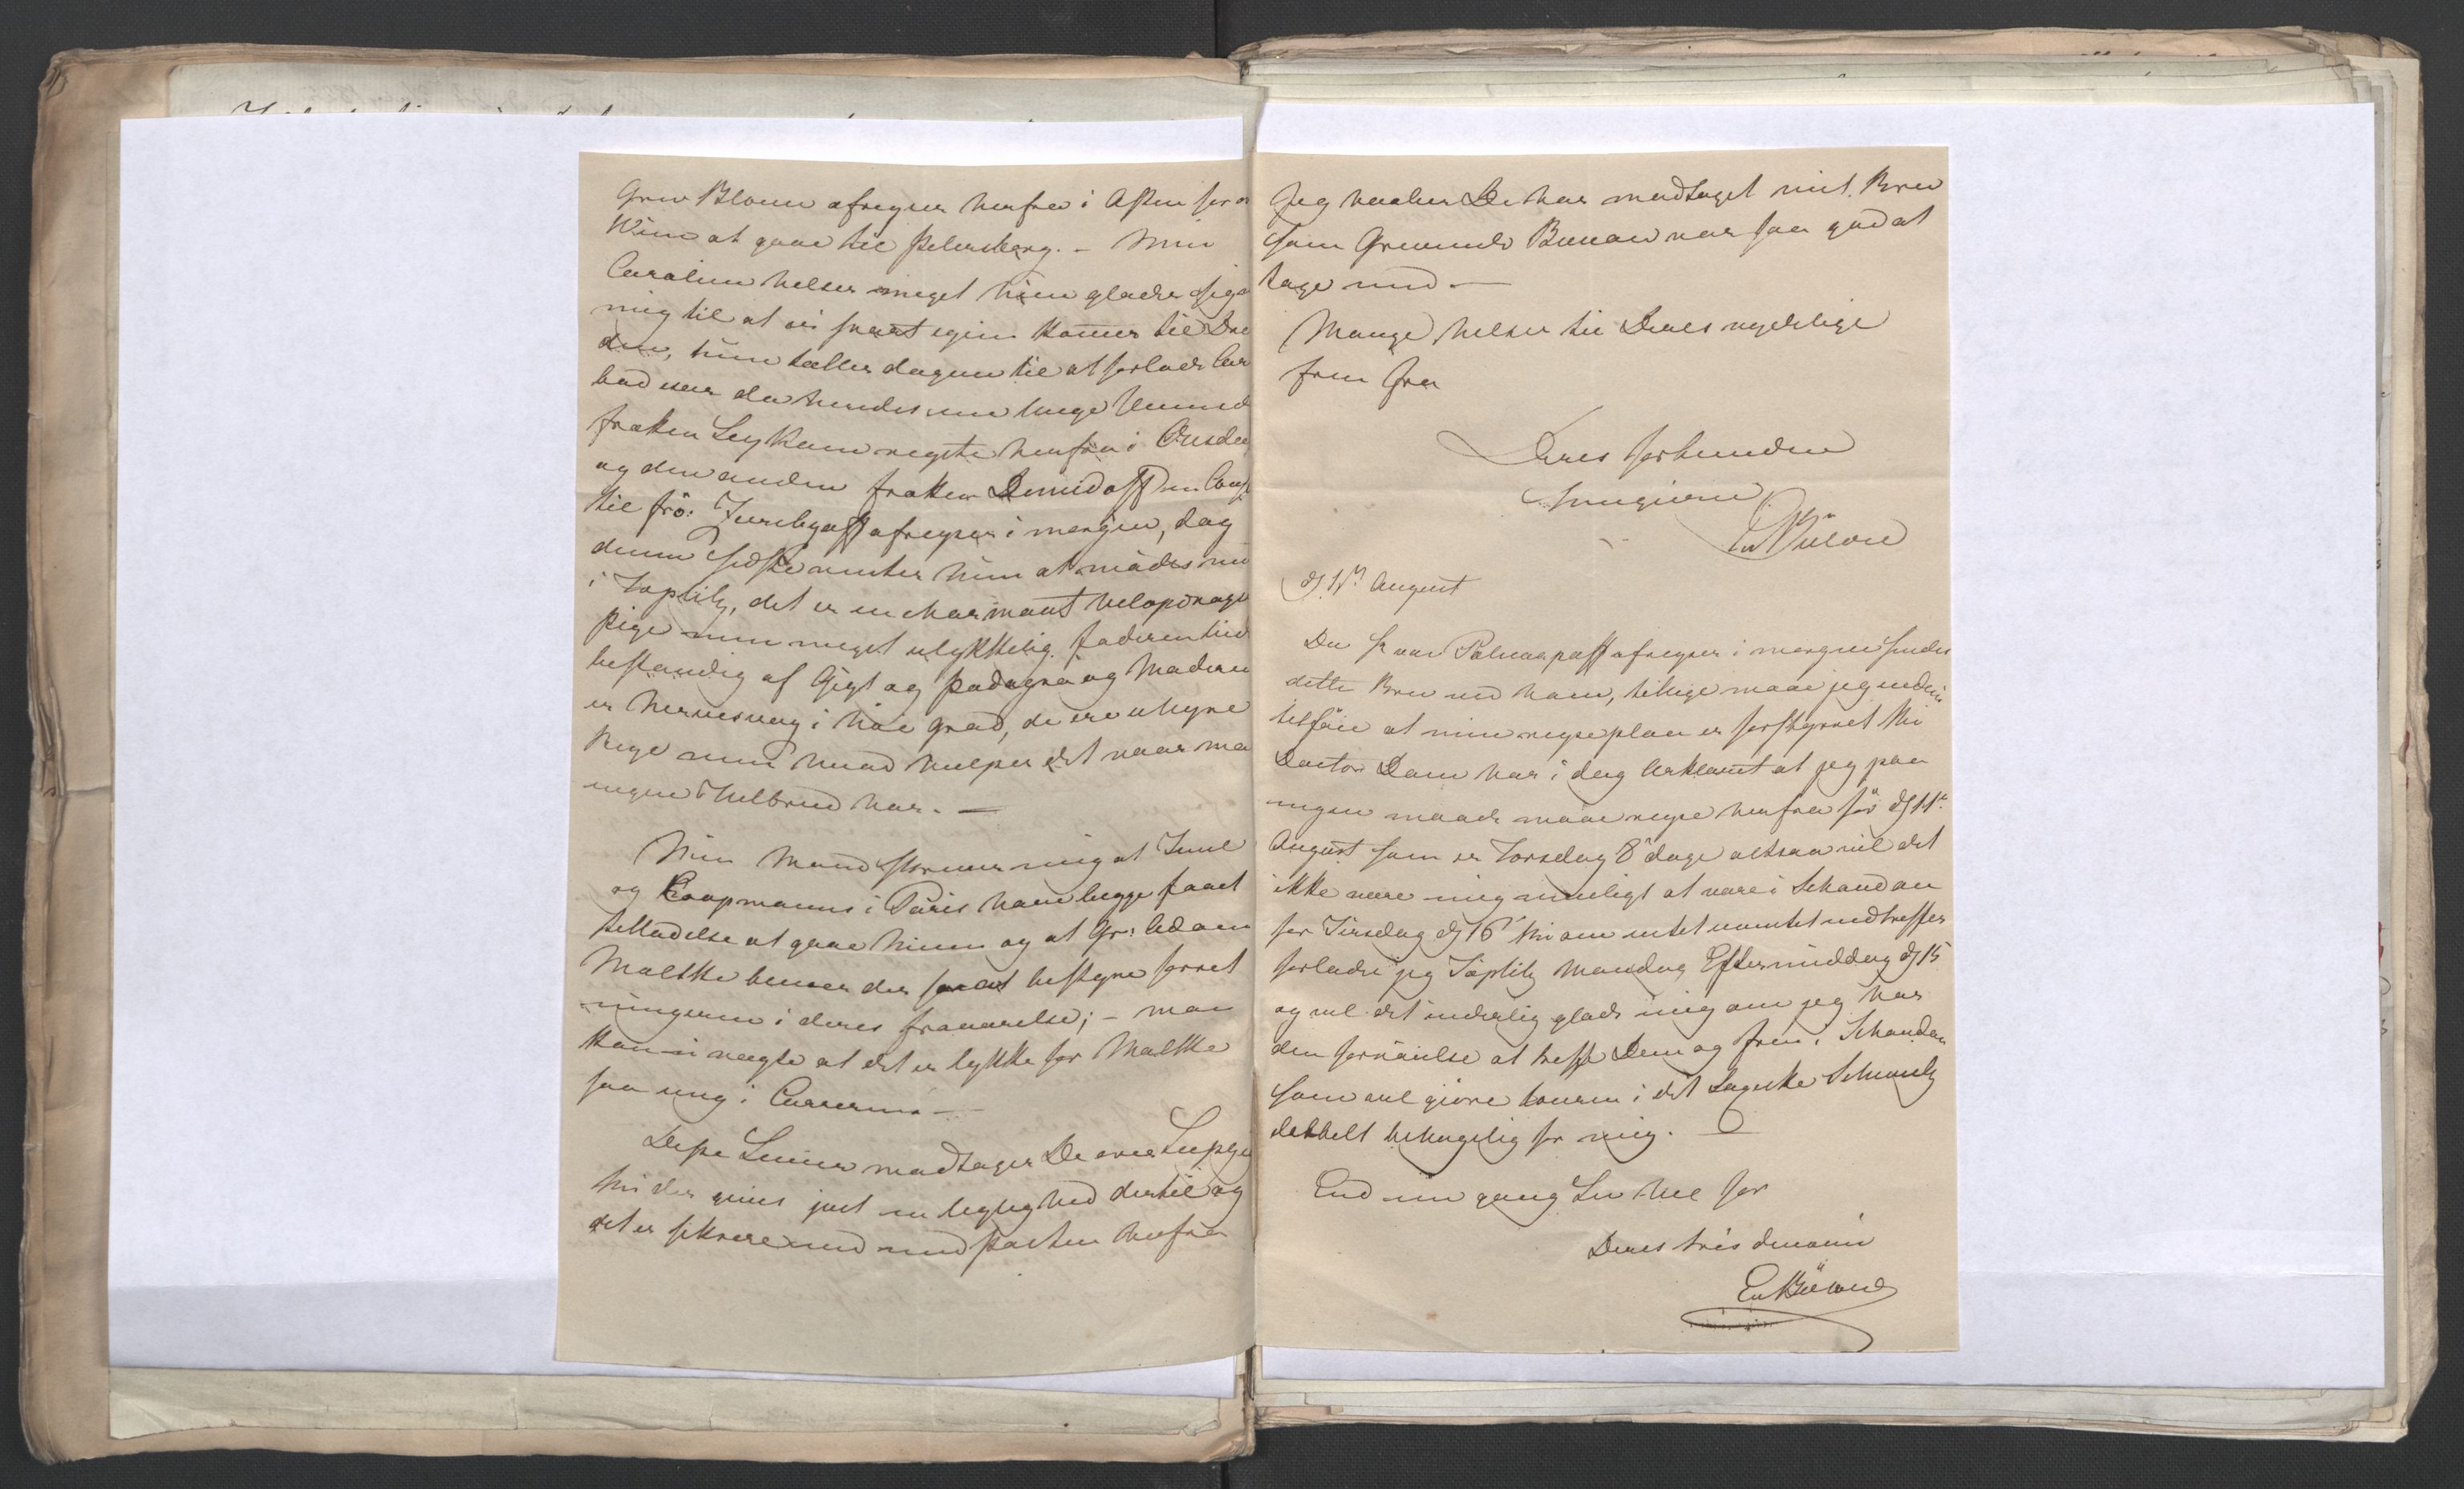 Grev Blome afreyser herfra i Aften for o
Wien at gaae til Petersborg. – Min
Caroline helser meget hun glæder sig
mig til at vi snart igien komer til Dre
den, hun tæller dagene til at forlade Car
bad især da hendes ene unge Veninde
frøken Leykam reyste herfra i Onsdag
og den anden frøken Demidoff en Cous
til frö: Jurelgaff afreyser i morgen, dog
denne sidste venter hun at möde
i Töplitz, det er en charmant velopdragen
Pige men meget ulykkelig. faderen lid
bestandig af Gigt og Podagra og Moderen
er Nervesvag i höi grad, de ere uhyre
Rige men hvad hielper det naar ma
ingen Helbred har. —
Min Mand skriver mig at Juul
og Koopmanns i Paris have begge faaet
tilladelse at gaae hiem og at Gr: Adam
Moltke bliver der for at bestyre forret
ningerne i deres fraværelse; – man
kan ei nægte at det er lykke for Moltke
saa ung i Carrieren —
Disse Linier modtager De over Leipzig
thi der gives just en leylighed dertil og
det er sikrere end med Posten herfra
Jeg haaber De har modtaget mit Brev
som Grevinde Bünau var saa god at
tage med —
Mange helser til Deres nydelige
frue fra
Deres forbunden
hengivne
Ev Bülow
d. 4de August
Da Hr von Palucapaff afreyser i morgen sender
dette Brev med ham, tillige maae jeg endnu
tilföie at min reyseplan er forstyrret thi
Doctor Dam har i dag erklæret at jeg paa
ingen maade maae reyse herfra för d 11te
August som er Torsdag 8te dage altsaa vil det
ikke være mig mueligt at være i Schandau
för Tirsdag d 16 thi om intet uventet indtreffer
forlader jeg Töplitz Mandag Eftermiddag d 15
og vil det inderlig glæde mig om jeg har
den fornöielse at treffe Dem og frue i Schandau
som vil giöre touren i det Saxiske Schweitz
dobbelt behagelig for mig. —
End een gang Lev Vel for
Deres tres devouée
Ev Bülow